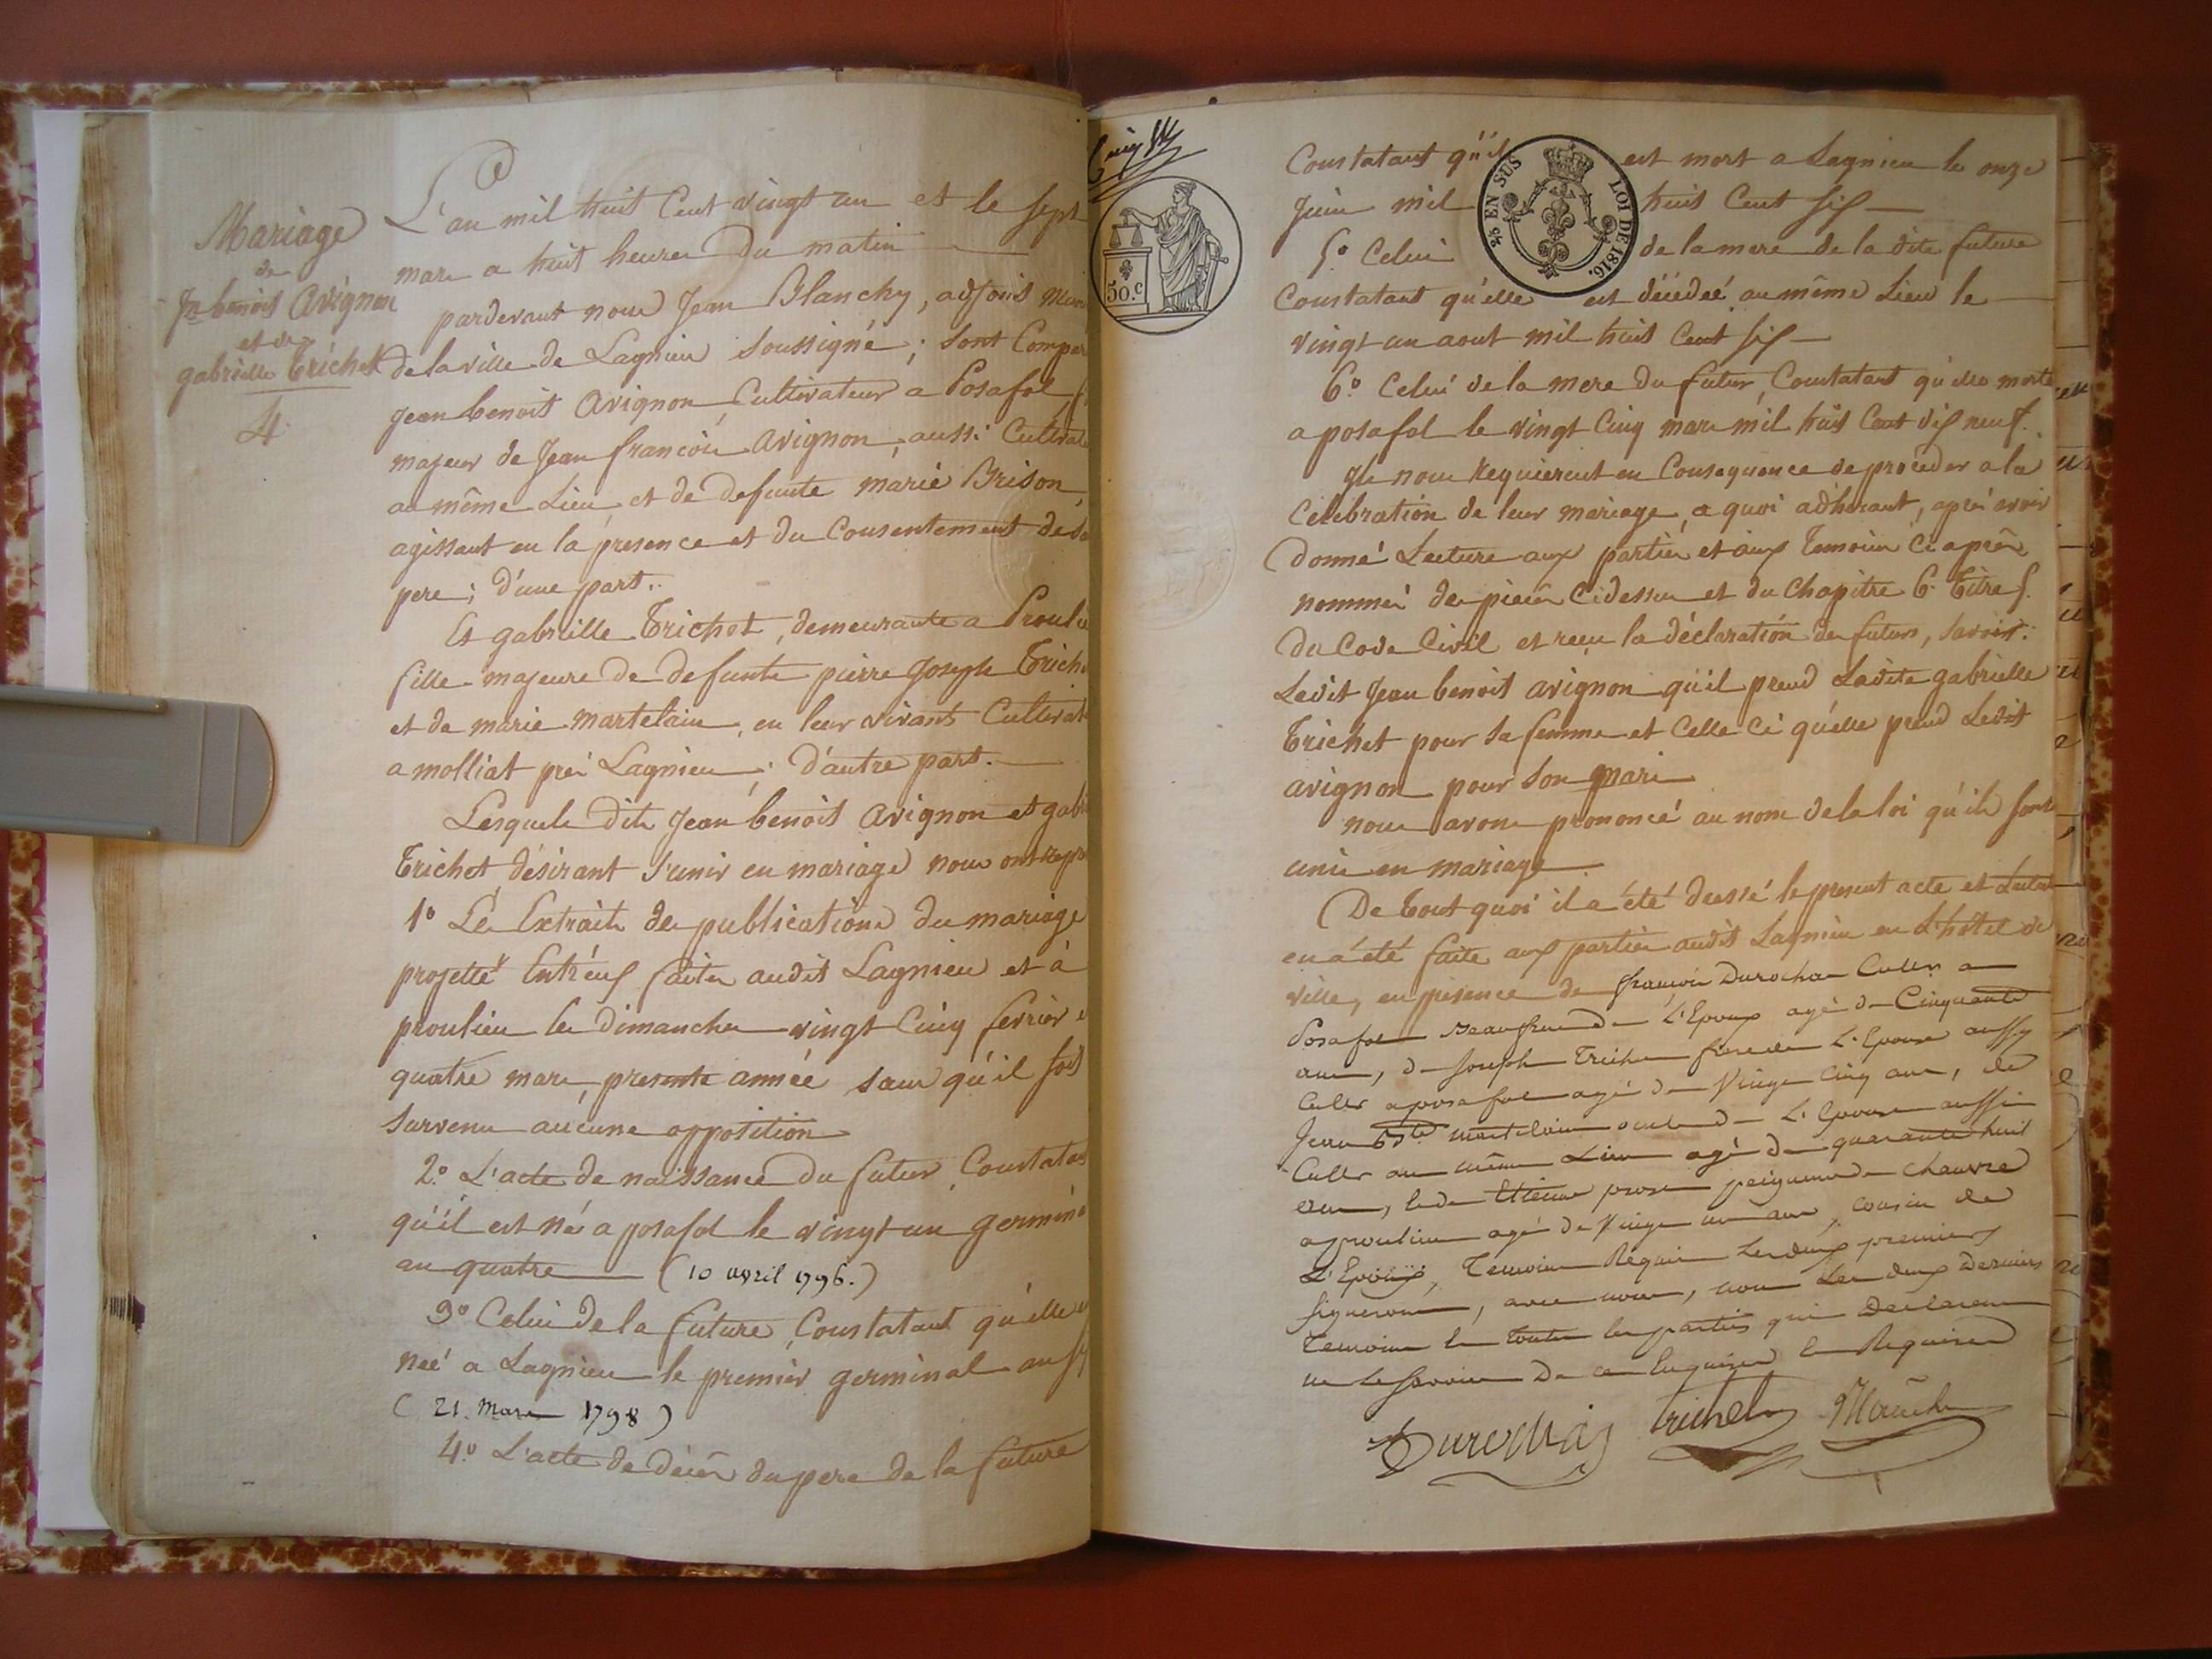 Mariage
de
Jn benoit Avignon
et de
gabrielle Trichet
4
L'an mil huit Cent vingt un et le sept
mars a huit heures du matin
pardevant nous Jean Blanchy, adjoint
de la ville de Lagnieu soussigné ; sont
jean benoit Avignon Cultivateur a Posafol
majeur de Jean francois Avignon, aussi
au même Lieu et de defunte marie Brison,
agissant en la presence et du Consentement de
pere ; d'une part.
Et gabrielle Trichet, demeurante a
fille majeure de defunts pierre Joseph
et de marie martelain, en leur vivants
a molliat prés Lagnieu ; d'autre part.
Lesquels dits Jean benoit Avignon et
Trichet, désirant s'unir en mariage nous ont
1º Les Extraits de publications du mariage
projetté Entr'eux faites audit Lagnieu et à
proulieu les dimanches vingt Cinq fevrier
quatre mars, presente année sans qu'il soit
survenu aucune opposition
2º L'acte de naissance du futur,
qu'il est né a posafol le vingt un
an quatre (10 avril 1796.)
3º Celui de la future, Constatant qu'elle
neé a Lagnieu le premier germinal an
(21. Mars 1798)
4º L'acte de décès du pere de la future
50.c
25 EN SUS
LOI DE 1816.
Constatant qu'il est mort a Lagnieu le onze
Juin mil huit Cent six
5º Celui de la mere de la dite future
Constatant qu'elle est décédeé au même Lieu le
vingt un aout mil huit Cent six
6º Celui de la mere du futur, Constatant qu'elle morte
a posafol le vingt Cinq mars mil huit Cent dix neuf.
Ils nous Requierent en Consequence de proceder a la
Celebration de leur mariage, a quoi adhérant, aprés avoir
donné Lecture aux parties et aux temoins Ci aprés
nommés des pieces Cidessus et du Chapitre 6. Titre 5.
du Code Civil et reçu la déclaration des futurs, savoir :
Ledit Jean benoit avignon qu'il prend Ladite gabrielle
Trichet pour sa femme et Celle Ci qu'elle prend Ledit
avignon pour son mari
nous avons prononcé au nom de la loi qu'ils sont
unis en mariage.
De tout quoi il a été dressé le present acte et Lecture
en a été faite aux parties audit Lagnieu en L'hôtel de
ville, en présence de françois Durochat Culter a
Posafol Beaufrere de L'Epoux agé de Cinquante
ans, de Joseph Trichet frere de L'Epouse aussy
Culter a posafol agé de Vingt Cinq ans, de
Jean Bste martelain oncle de L'Epouse aussi
Culter au même Lieu agé de quarante huit
ans, & de Etienne peigneur de chanvre
a proulieu agé de Vingt un ans, cousin de
L'Epoux, Temoins Requis Les deux premiers
signeront, avec nous, non Les deux Derniers
Temoins & toutes les parties qui Declarent
ne le savoir De ce Enquises & Requises
Durochat Trichet Blanchy